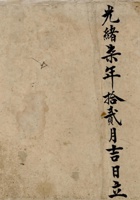 光緒柒年拾貳月吉日立